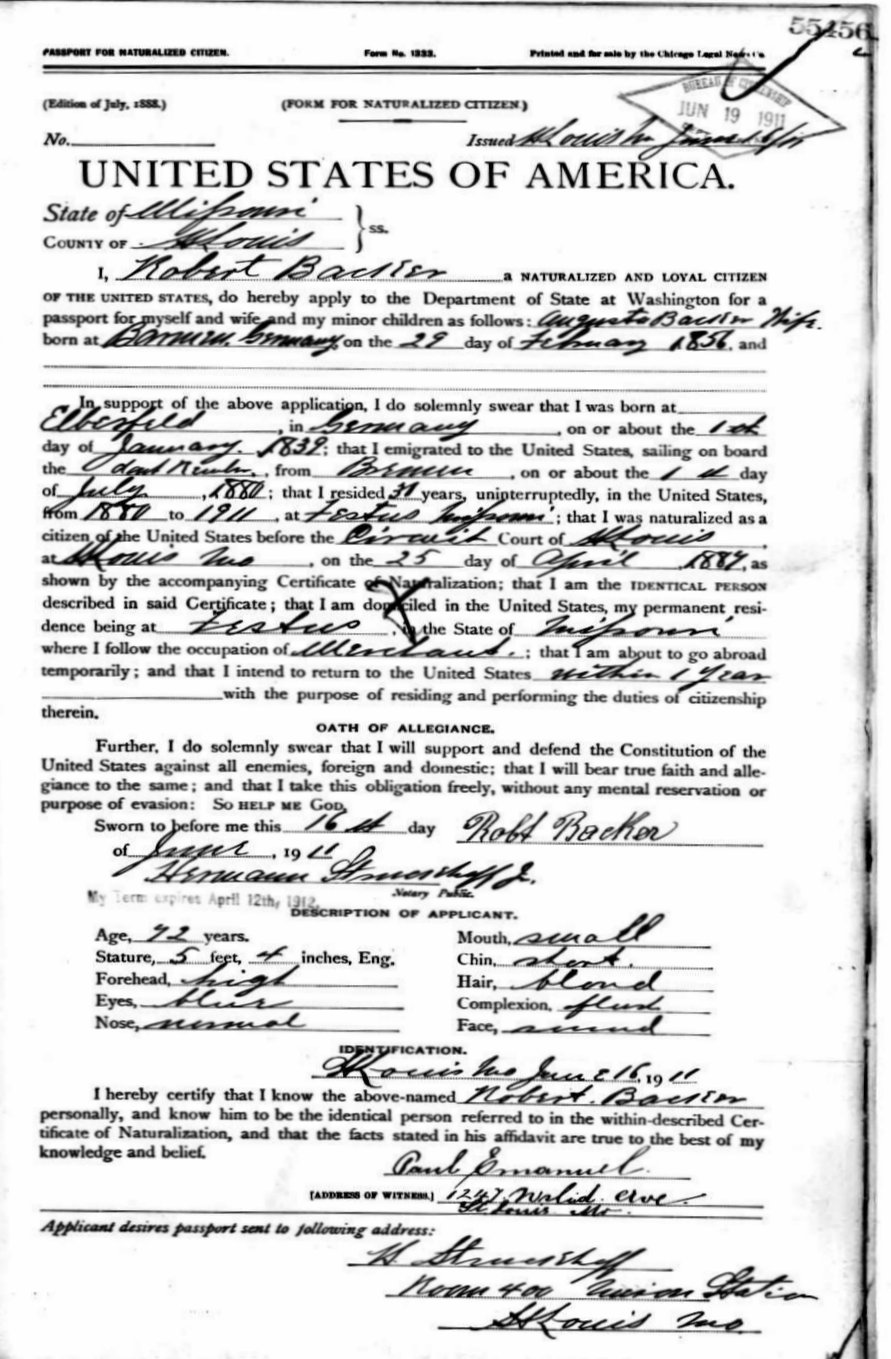 55456
PASSPORT FOR NATURALIZED CITIZEN. Form No. 1333. Printed and for sale by the Chicago Legal News Co.
(Edition of July, 1888.) (FORM FOR NATURALIZED CITIZEN.)
BUREAU OF CITIZENSHIP
JUN 19 1911
No. Issued St Louis Mo June 16/11
UNITED STATES OF AMERICA.
State of Missouri
COUNTY OF St Louis } ss.
I, Robert Backer a NATURALIZED AND LOYAL CITIZEN
OF THE UNITED STATES, do hereby apply to the Department of State at Washington for a
passport for myself and wife and my minor children as follows: Augusta Backer Wife.
born at Barmen, Germany, on the 29 day of February 1856, and
In support of the above application, I do solemnly swear that I was born at
Elberfeld, in Germany, on or about the 1th
day of January, 1839; that I emigrated to the United States, sailing on board
the, from Bremen, on or about the 1st day
of July, 1880; that I resided 31 years, uninterruptedly, in the United States,
from 1880 to 1911, at Festus Missouri; that I was naturalized as a
citizen of the United States before the Circuit Court of St Louis,
at St Louis Mo, on the 25 day of April, 1887, as
shown by the accompanying Certificate of Naturalization; that I am the IDENTICAL PERSON
described in said Certificate; that I am domiciled in the United States, my permanent resi-
dence being at Festus, in the State of Missouri
where I follow the occupation of Merchant.; that I am about to go abroad
temporarily; and that I intend to return to the United States within 1 Year
with the purpose of residing and performing the duties of citizenship
therein.
OATH OF ALLEGIANCE.
Further, I do solemnly swear that I will support and defend the Constitution of the
United States against all enemies, foreign and domestic; that I will bear true faith and alle-
giance to the same; and that I take this obligation freely, without any mental reservation or
purpose of evasion: SO HELP ME GOD.
Sworn to before me this 16th day Robt Backer
of June, 1911
Hermann Struckhoff Jr.
Notary Public.
My Term expires April 12th, 1912.
DESCRIPTION OF APPLICANT.
Age, 72 years. Mouth, small
Stature, 5 feet, 4 inches, Eng. Chin, short.
Forehead, high Hair, blond
Eyes, blue Complexion,
Nose, normal Face, round
IDENTIFICATION.
St Louis Mo June 16, 1911
I hereby certify that I know the above-named Robert. Backer
personally, and know him to be the identical person referred to in the within-described Cer-
tificate of Naturalization, and that the facts stated in his affidavit are true to the best of my
knowledge and belief.
Paul Emanuel.
[ADDRESS OF WITNESS.] 1247
St Louis Mo.
Applicant desires passport sent to following address:
H Struckhoff
Room 400 Union Station
St Louis Mo.